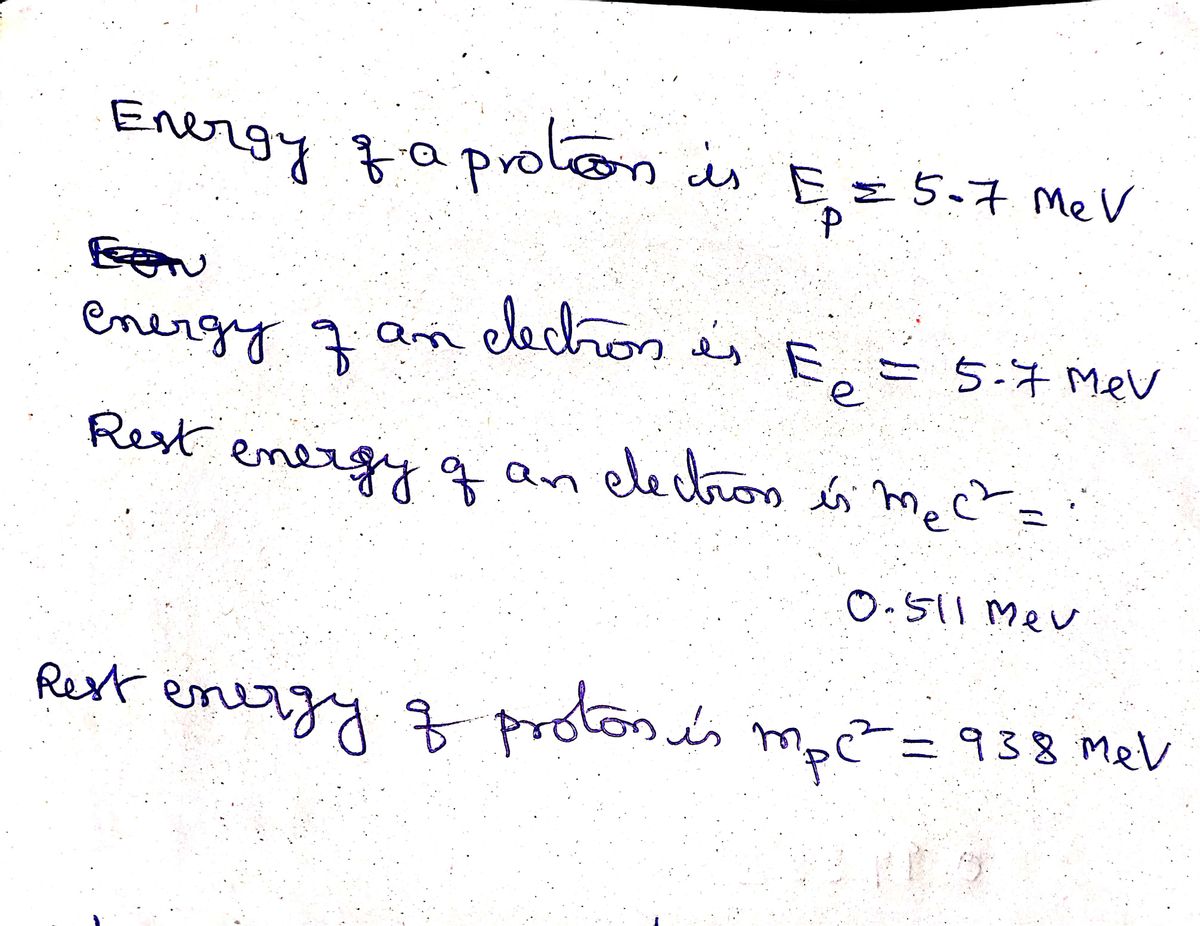 Energy of a proton is E_p = 5.7 MeV
energy of an electron is E_e = 5.7 MeV
Rest energy of an electron is m_e c² =
0.511 MeV
Rest energy of proton is m_p c² = 938 MeV